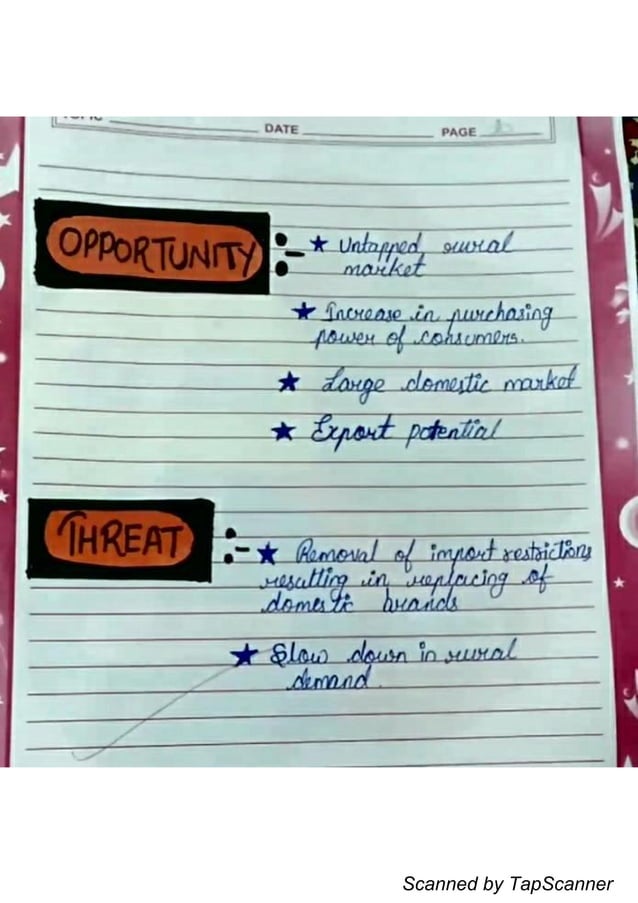 DATE PAGE
OPPORTUNITY :- ★ Untapped rural
market
★ Increase in purchasing
power of consumers.
★ Large domestic market
★ Export potential
THREAT :- ★ Removal of import restrictions
resulting in replacing of
domestic brands
★ Slow down in rural
demand.
Scanned by TapScanner